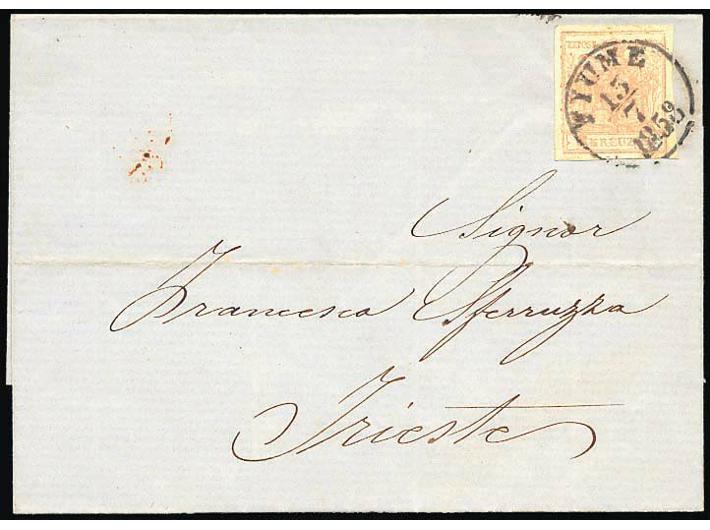 FIUME
15/7
1858
KREUZER
Signor
Francesco Sferruzza
Trieste